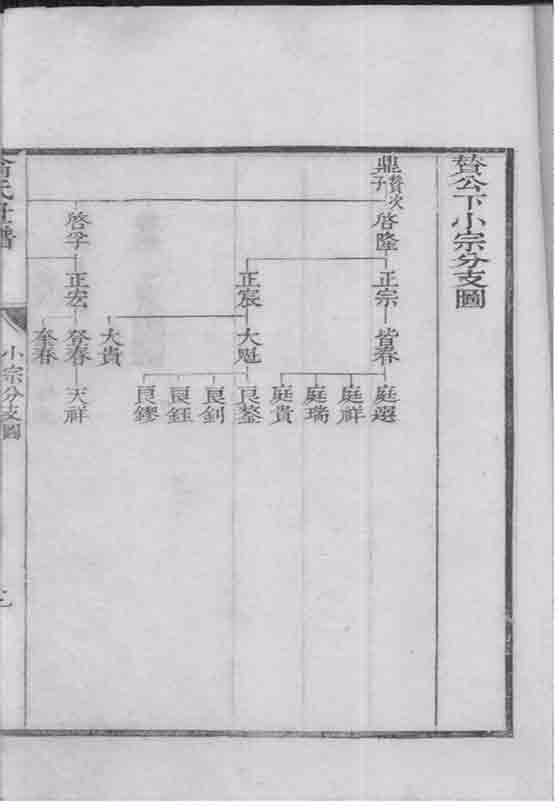 賛公下小宗分支圖
鼎
賛次子
啓隆
正宗
皆春
庭選
庭祥
庭瑞
庭貴
正宸
大魁
良鍪
良釗
良鈺
良鏐
大貴
啓孚
正宏
登春
天祥
奎春
氏世譜
小宗分支圖